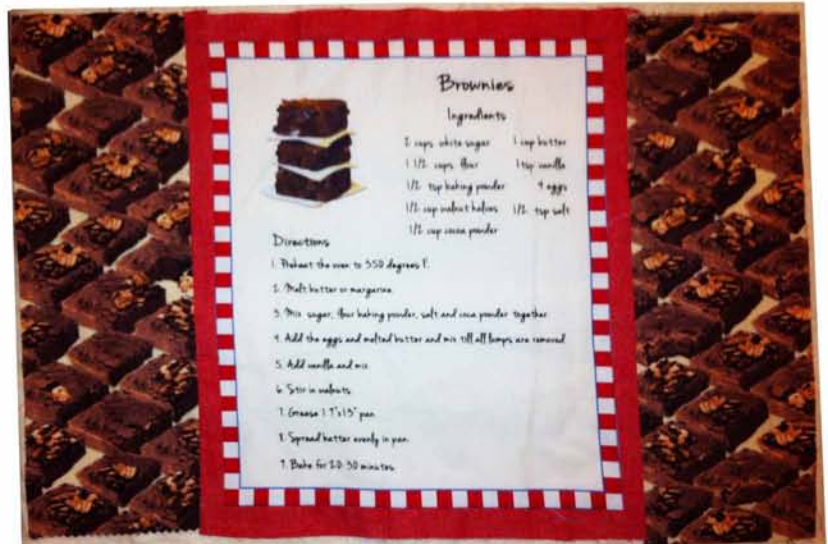 Brownies
Ingredients
2 cups white sugar 1 cup butter
1 1/2 cups flour 1 tsp vanilla
1/2 tsp baking powder 4 eggs
1/2 cup walnut halves 1/2 tsp salt
1/2 cup cocoa powder
Directions
1. Preheat the oven to 350 degrees F.
2. Melt butter or margarine.
3. Mix sugar, flour baking powder, salt and coca powder together
4. Add the eggs and melted butter and mix till all lumps are removed
5. Add vanilla and mix
6. Stir in walnuts.
7. Grease 1 9"x13" pan.
8. Spread batter evenly in pan.
9. Bake for 20-30 minutes.